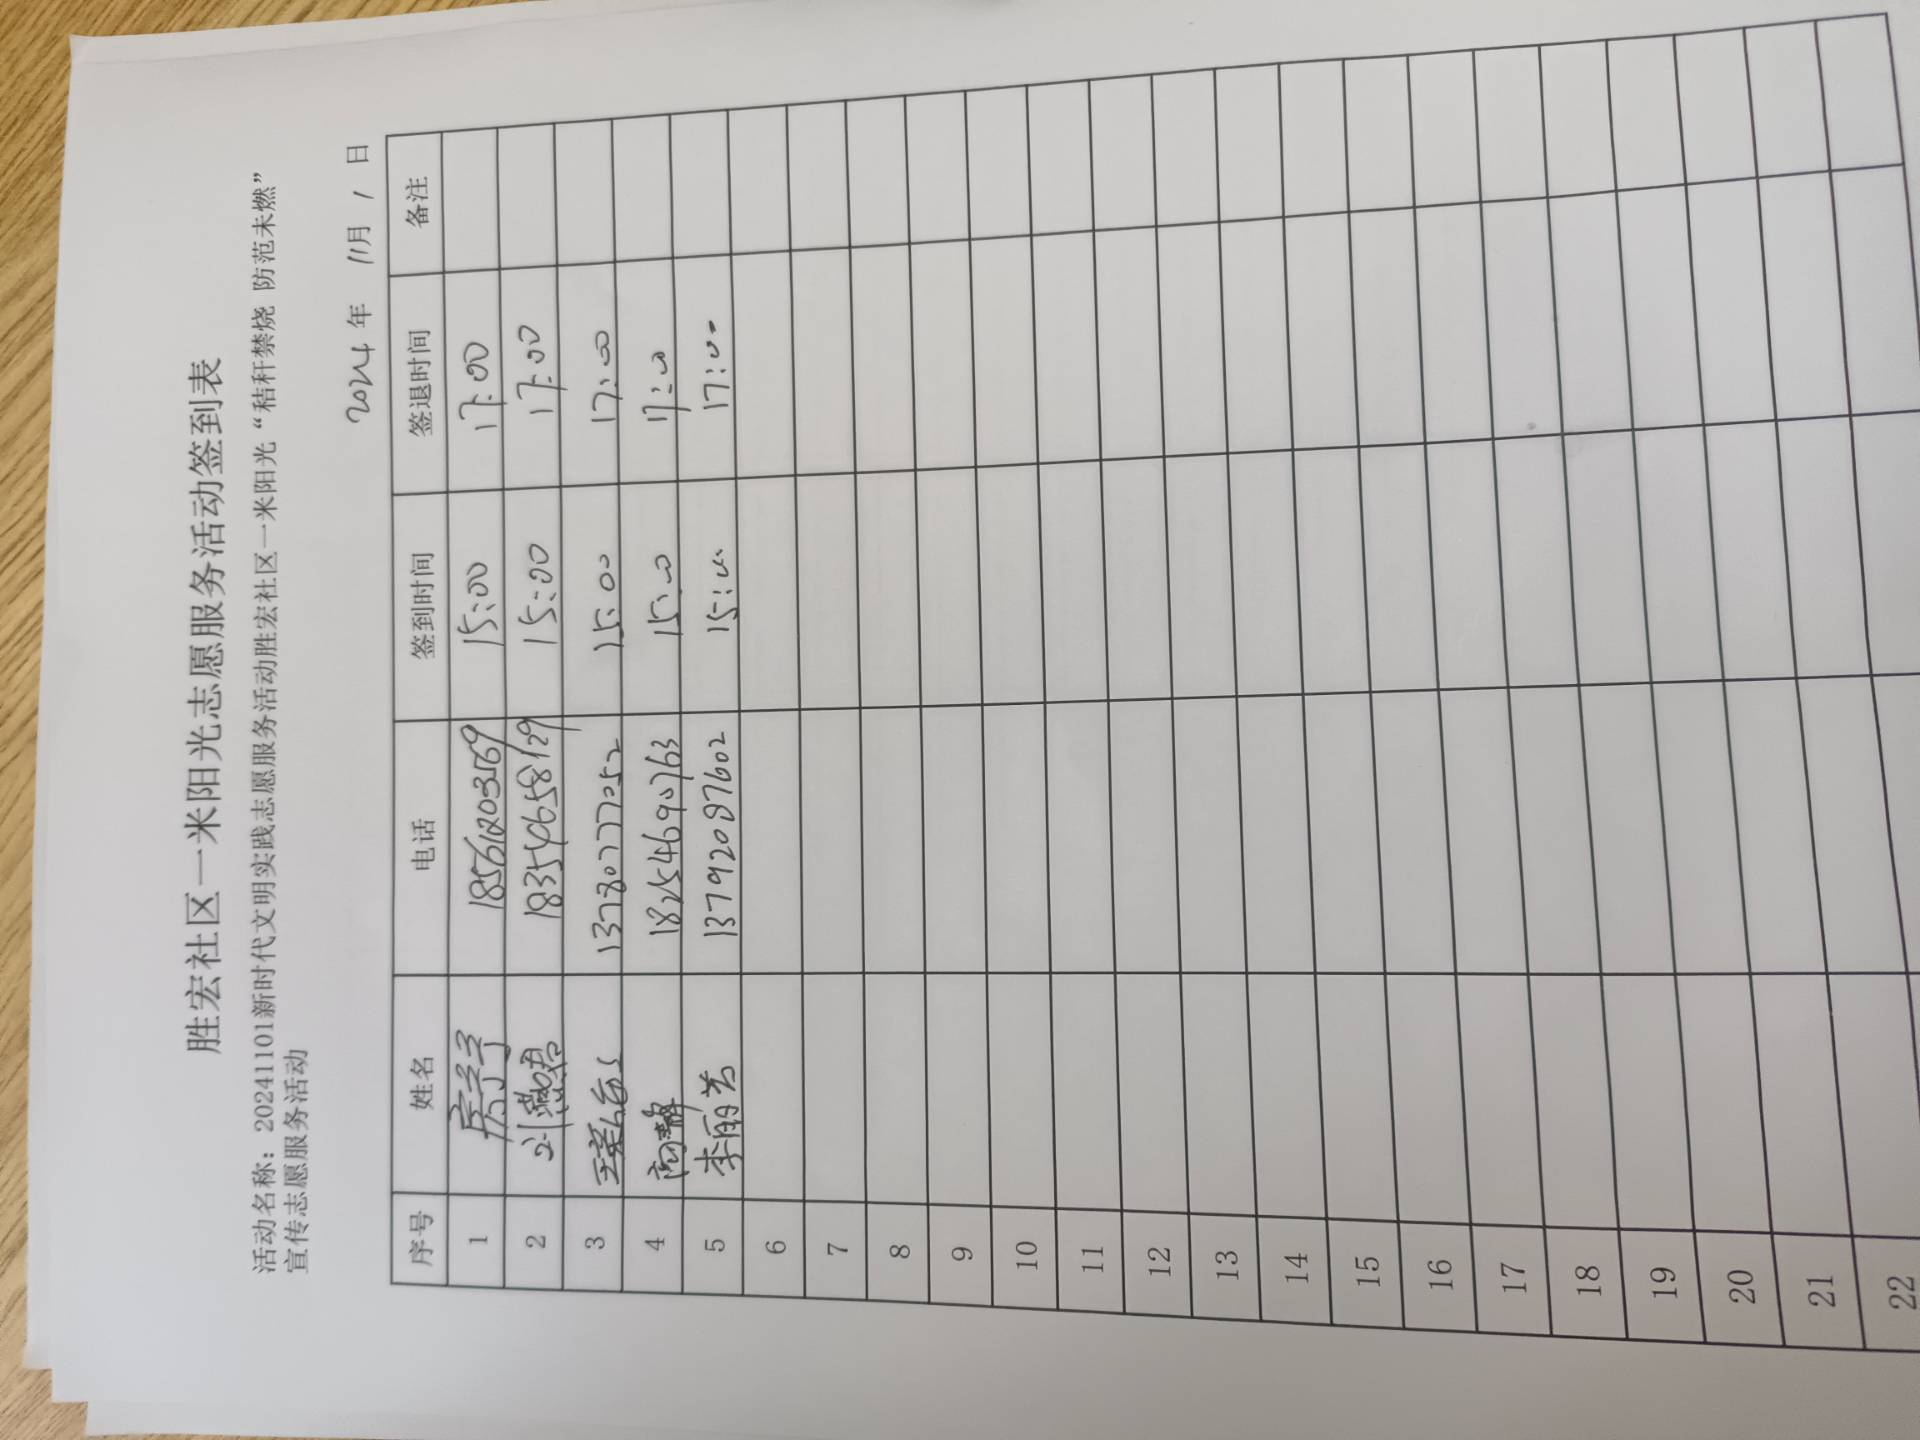 胜宏社区一米阳光志愿服务活动签到表
活动名称：20241101新时代文明实践志愿服务活动胜宏社区一米阳光“秸秆禁烧 防范未燃”
宣传志愿服务活动
2024年 11月 1 日
序号 姓名 电话 签到时间 签退时间 备注
1 房孑孑 18561203569 15:00 17:00
2 刘燕君 18354658129 15:00 17:00
3 13780777252 15:00 17:00
4 高静 18254690763 15:00 17:00
5 李丽芳 13792087602 15:00 17:00
6
7
8
9
10
11
12
13
14
15
16
17
18
19
20
21
22